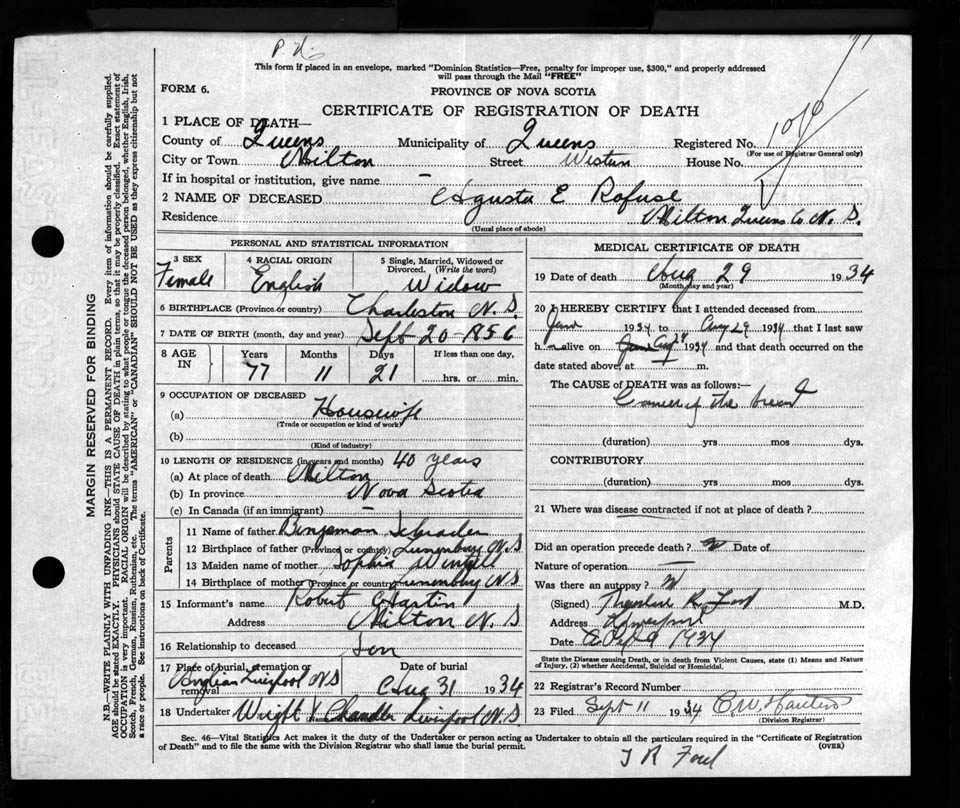 This form if placed in an envelope, marked "Dominion Statistics—Free, penalty for improper use, $300," and properly addressed
will pass through the Mail "FREE"
FORM 6.
PROVINCE OF NOVA SCOTIA
CERTIFICATE OF REGISTRATION OF DEATH
1 PLACE OF DEATH—
County of Queens Municipality of Queens Registered No. 1010
(For use of Registrar General only)
City or Town Milton Street Western House No.
If in hospital or institution, give name —
2 NAME OF DECEASED Agusta E Rafuse
Residence Milton Queens Co. N. S.
(Usual place of abode)
PERSONAL AND STATISTICAL INFORMATION
3 SEX 4 RACIAL ORIGIN 5 Single, Married, Widowed or Divorced. (Write the word)
Female English Widow
6 BIRTHPLACE (Province or country) Charleston N. S.
7 DATE OF BIRTH (month, day and year) Sept 20-1856
8 AGE IN Years Months Days If less than one day,
77 11 21 hrs. or min.
9 OCCUPATION OF DECEASED
(a) Housewife
(Trade or occupation or kind of work)
(b)
(Kind of industry)
10 LENGTH OF RESIDENCE (in years and months) 40 years
(a) At place of death Milton
(b) In province Nova Scotia
(c) In Canada (if an immigrant) —
Parents
11 Name of father Benjaman
12 Birthplace of father (Province or country) Lunenburg N.S
13 Maiden name of mother Sophia
14 Birthplace of mother (Province or country) Lunenburg N.S
15 Informant's name Robert
Address Milton N. S
16 Relationship to deceased Son
17 Place of burial, cremation or removal Date of burial
Anglican Liverpool N S Aug 31 1934
18 Undertaker Wright & Chandler Liverpool N. S
(Name
MEDICAL CERTIFICATE OF DEATH
19 Date of death Aug 29 1934
(Month, day and year)
20 I HEREBY CERTIFY that I attended deceased from
June 1934 to Aug 29 1934 that I last saw
h alive on Aug 28 1934 and that death occurred on the
date stated above, at m.
The CAUSE OF DEATH was as follows:—
Cancer of the breast
(duration) yrs mos dys.
CONTRIBUTORY
(duration) yrs mos dys.
21 Where was disease contracted if not at place of death?
Did an operation precede death? Date of
Nature of operation —
Was there an autopsy?
(Signed) Theodore R. Ford M.D.
Address Liverpool
Date 1934
State the Disease causing Death, or in death from Violent Causes, state (1) Means and Nature of Injury, (2) whether Accidental, Suicidal or Homicidal.
22 Registrar's Record Number
23 Filed Sept 11 1934
(Division Registrar)
Sec. 46—Vital Statistics Act makes it the duty of the Undertaker or person acting as Undertaker to obtain all the particulars required in the "Certificate of Registration
of Death" and to file the same with the Division Registrar who shall issue the burial permit.
(OVER)
T R Ford
MARGIN RESERVED FOR BINDING
N.B.—WRITE PLAINLY WITH UNFADING INK—THIS IS A PERMANENT RECORD. Every item of information should be carefully supplied.
AGE should be stated EXACTLY. PHYSICIANS should STATE CAUSE OF DEATH in plain terms, so that it may be properly classified. Exact statement of
OCCUPATION is very important. RACIAL ORIGIN will be described by stating to what people or tongue the deceased person belonged, whether English, Irish,
Scotch, French, German, Russian, Ruthenian, etc. The terms "AMERICAN" or "CANADIAN" SHOULD NOT BE USED as they express citizenship but not
a race or people. See instructions on back of Certificate.